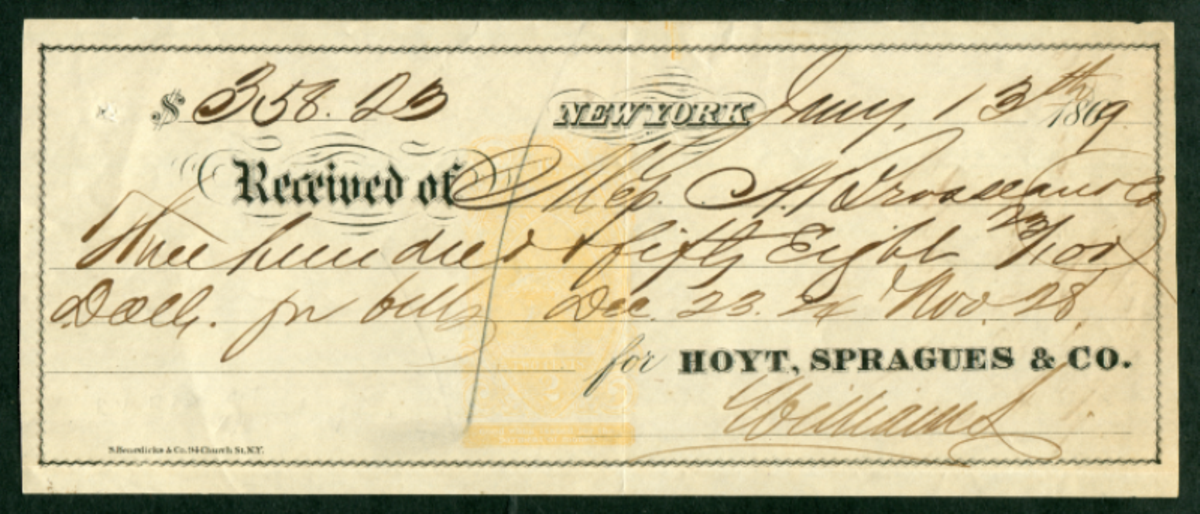 $ 358.23 NEW YORK Jany. 13th 1869
Received of Mess. A. & Co
Three hundred & fifty Eight 23/100
Dolls. for bills Dec. 23. & Nov. 28
for HOYT, SPRAGUES & CO.
Williams
S. Benedicks & Co. 94 Church St. N.Y.